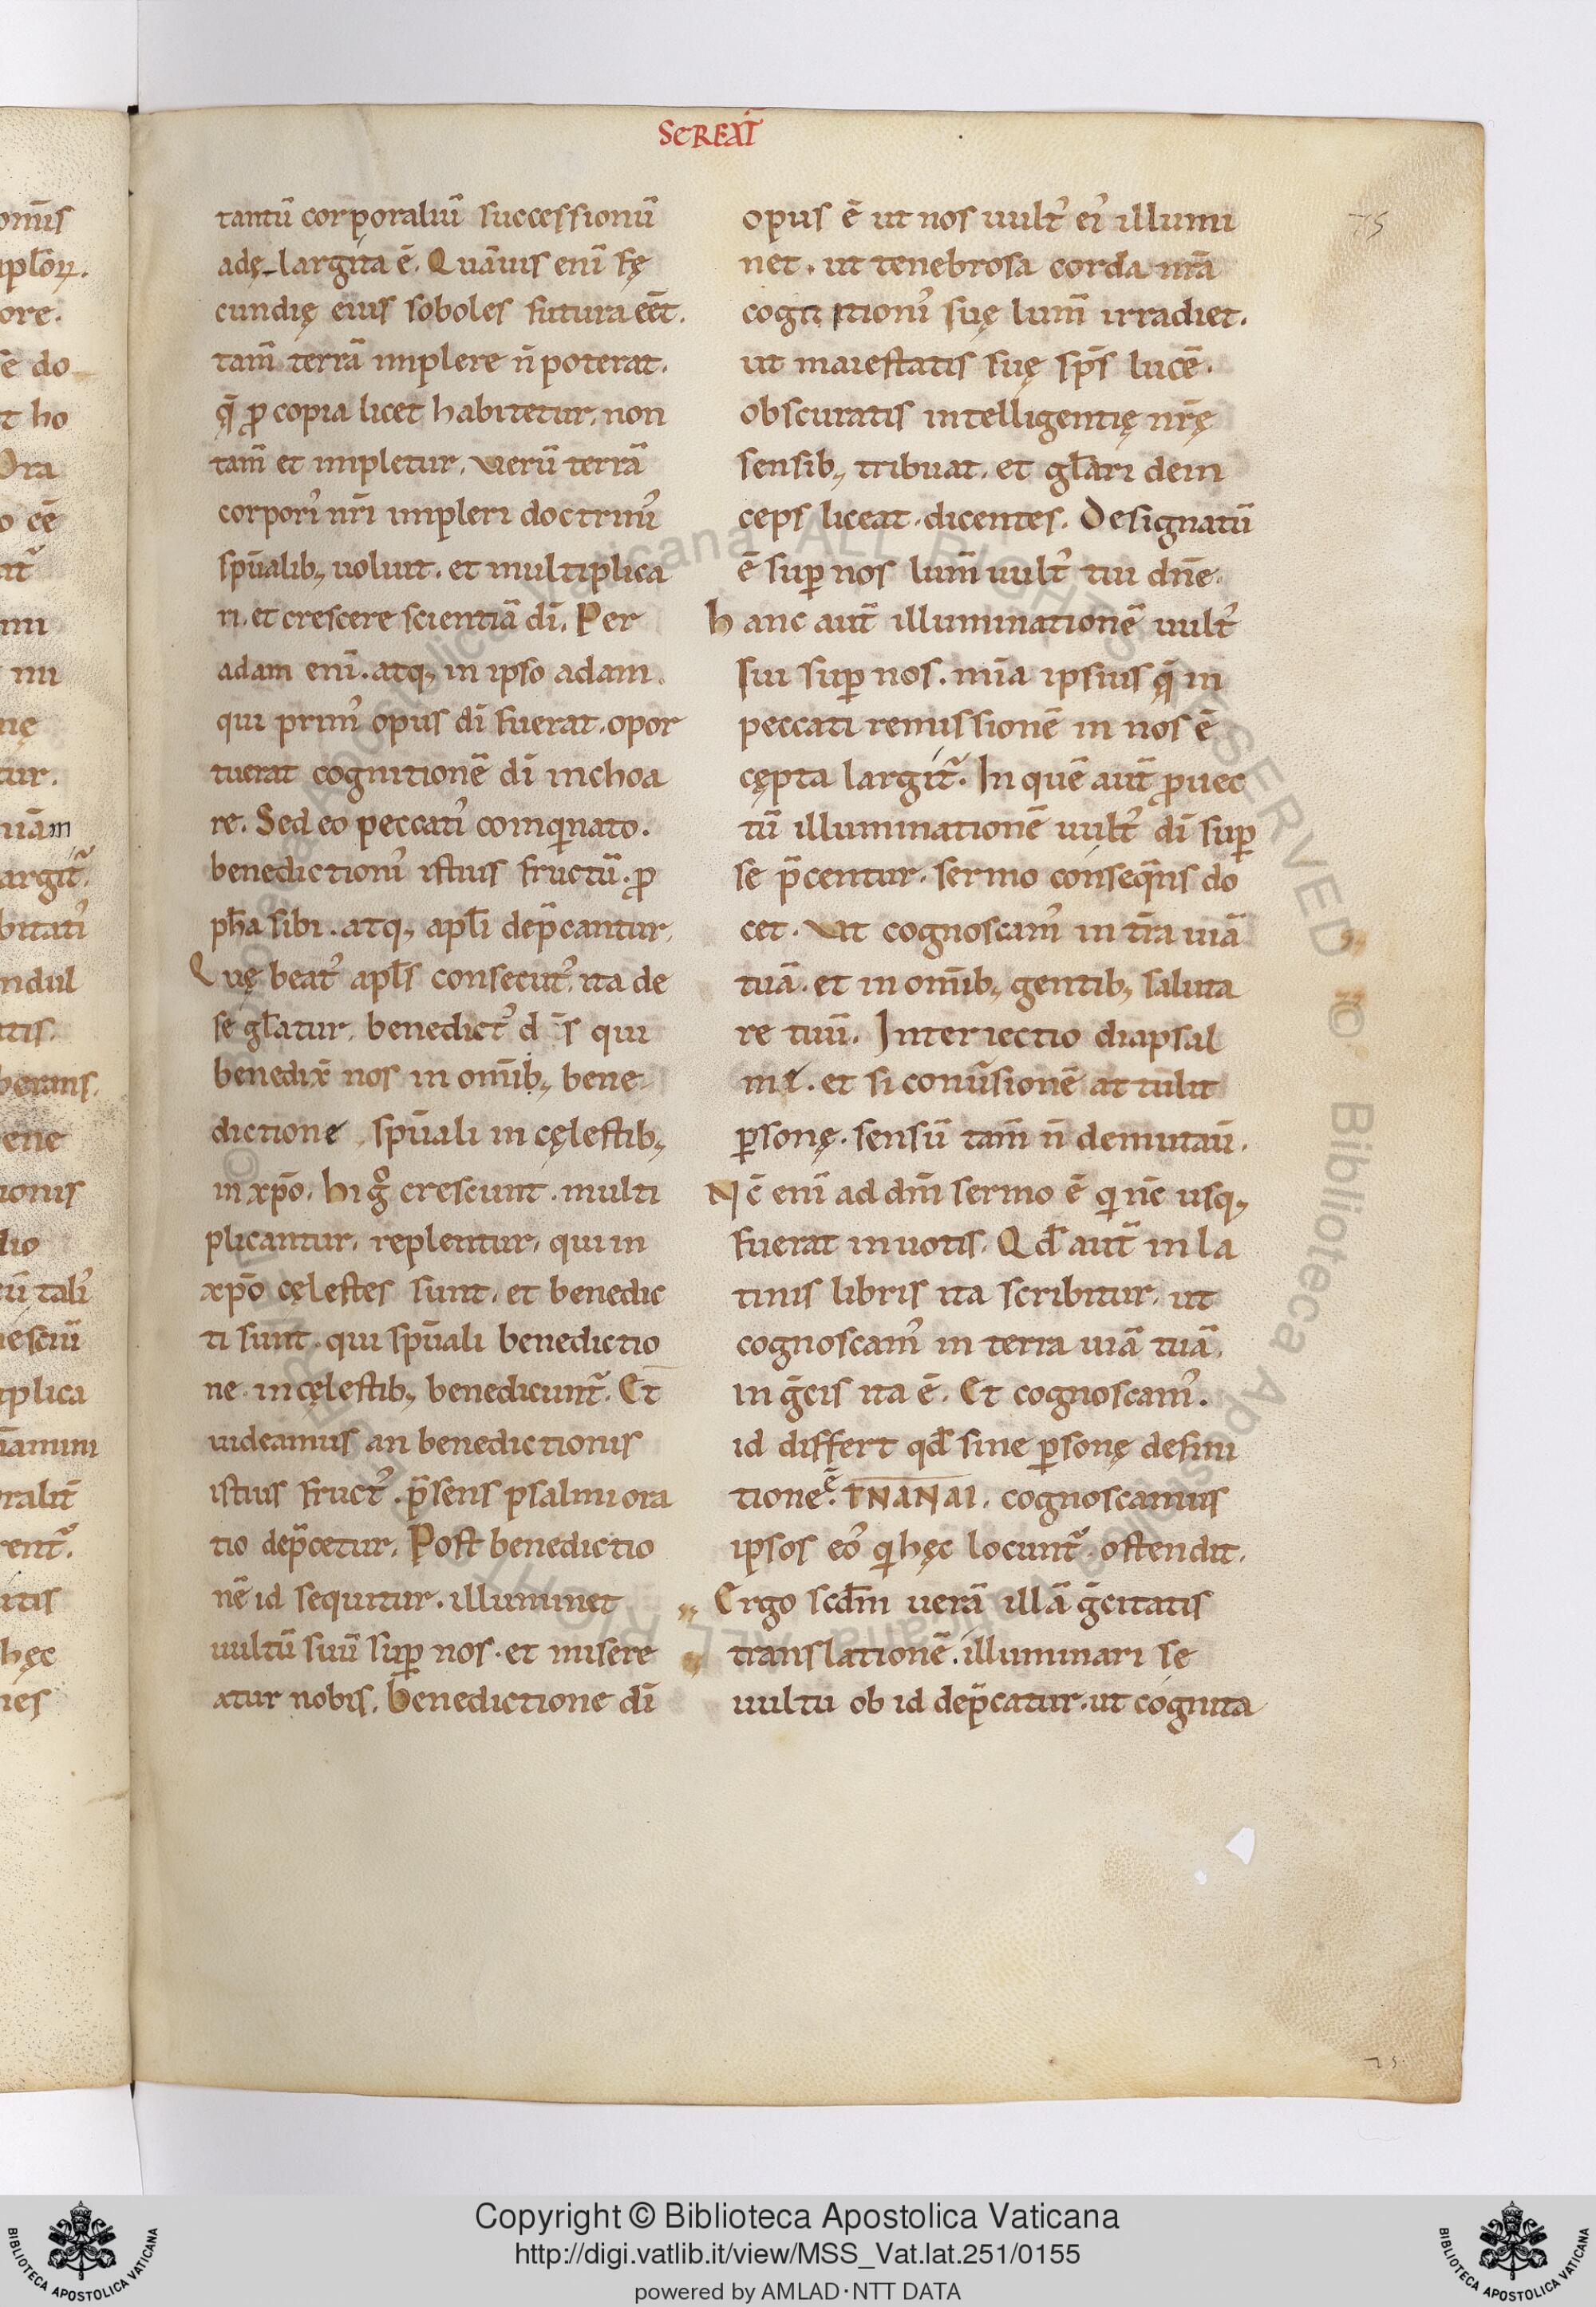 SCREXĪ
75
tantū corporaliū successionū
adę largita ē. Quāuis enī fę
cundię eius soboles futura eēt.
tam̄ terrā implere n̄ poterat.
q̄ ꝓ copia licet habitetur. non
tam̄ et impletur. uerū terrā
corporꝰ nr̄i impleri doctrinꝰ
sp̄ualib; uoluit. et multiplica
ri. et crescere scientiā dī. Per
adam enī. atq; in ipso adam.
qui primꝰ opus dī fuerat. opor
tuerat cognitionē dī inchoa
re. Sed eo peccatꝰ coinqinato.
benedictionꝰ istius fructū. ꝓ
ph̄a sibi. atq; apl̄i dep̄cantur.
Quę beatꝰ apl̄s consecutꝰ. ita de
se gl̄atur. benedictꝰ d s̄ qui
benedix̄ nos in om̄ib; bene
dictione sp̄uali in cęlestib;
in xp̄o. hi gͦ crescunt. multi
plicantur. replentur. qui in
xp̄o cęlestes sunt. et benedic
ti sunt. qui sp̄uali benedictio
ne in cęlestib; benedicunt᷑. Et
uideamus an benedictionis
istius fructꝰ. p̄sens psalmi ora
tio dep̄cetur. Post benedictio
nē id sequitur. illuminet
uultū suū suꝑ nos. et misere
atur nobis. Benedictione dī
opus ē ut nos uultꝰ eiꝰ illumi
net. ut tenebrosa corda nr̄a
cogn itionꝰ suę lum̄ irradiet.
ut maiestatis suę sp̄s lucē.
obscuratis intelligentię nr̄ę
sensib; tribuat. et gl̄ari dein
ceps liceat. dicentes. Designatū
ē suꝑ nos lum̄ uultꝰ tui dn̄e.
hanc aut̄ illuminationē uultꝰ
sui suꝑ nos. mīa ipsius q̄ in
peccati remissionē in nos ē
cępta largit᷑. In quē aut̄ ꝓuec
tū illuminationē uultꝰ dī suꝑ
se p̄centur. sermo conseq̄ns do
cet. Vt cognoscamꝰ in tr̄a uiā
tuā. et in om̄ib; gentib; saluta
re tuū. Interiectio diapsal
mę. et si conūsionē attulit
ꝑsonę. sensū tam̄ n̄ demutaū.
Nc̄ enī ad dn̄m sermo ē qi nc̄ usq;
fuerat in uotis. Qd̄ aut̄ in la
tinis libris ita scribitur. ut
cognoscamꝰ in terra uiā tuā.
in ḡcis ita ē. Et cognoscamꝰ.
id differt qd̄ sine ꝑsonę defini
tione ē. ΓΝΑΝΑΙ. cognoscamus
ipsos eoꝰ qi hęc locunt᷑. ostendit.
Ergo scd̄m uerā illā ḡcitatis
translationē. illuminari se
uultu ob id dep̄catur. ut cognita
75
Copyright © Biblioteca Apostolica Vaticana
http://digi.vatlib.it/view/MSS_Vat.lat.251/0155
powered by AMLAD·NTT DATA
BIBLIOTECA APOSTOLICA VATICANA
BIBLIOTECA APOSTOLICA VATICANA